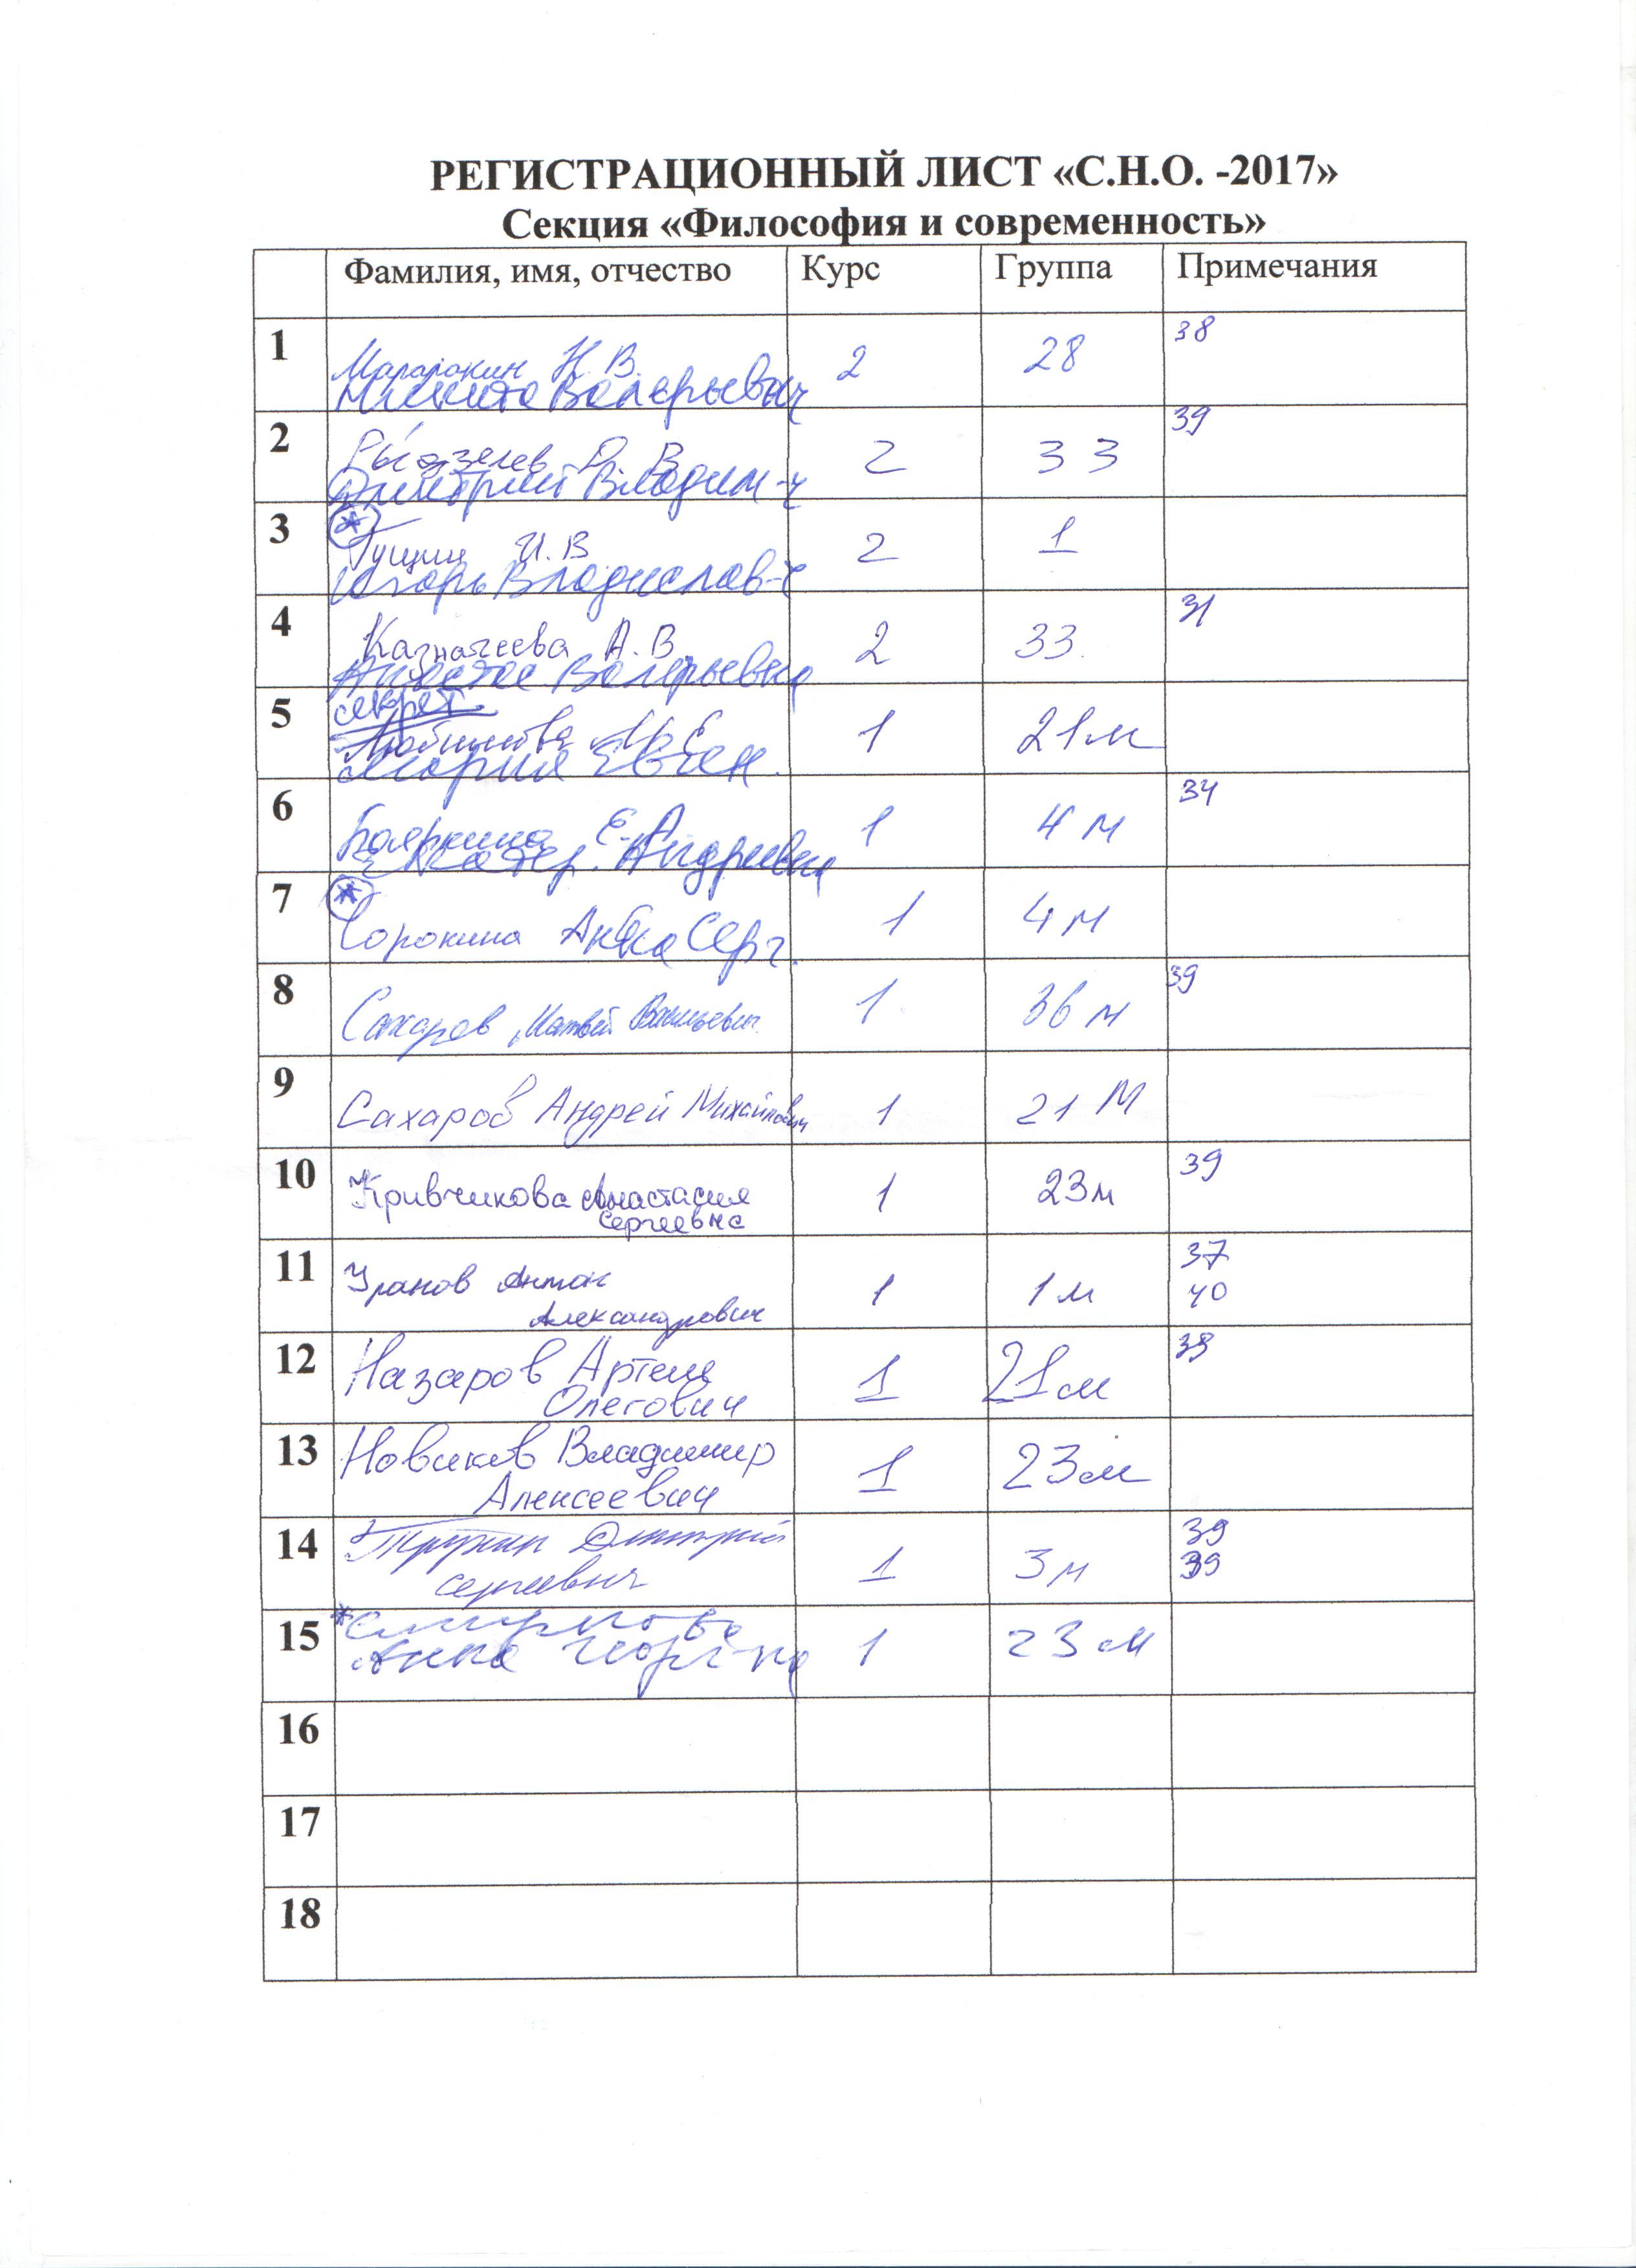 РЕГИСТРАЦИОННЫЙ ЛИСТ «С.Н.О. -2017»
Секция «Философия и современность»
Фамилия, имя, отчество Курс Группа Примечания
1 Н. В. 2 28 38
Никита Валерьевич
2 Д. В. 2 33 39
Дмитрий Владим-ч
3 * Гущин И. В 2 1
Игорь Владислав-ч
4 Казначеева А. В. 2 33. 31
Анастас Валерьевна
5 секрет
Любимова М. Е 1 21м
Мария Евген.
6 Бояркина Е. А 1 4 м 34
Екатер. Андреевна
7 * Сорокина Анна Серг. 1 4 м
8 Сахаров Матвей Васильевич 1 36 м 39
9 Сахаров Андрей Михайлович 1 21 М
10 Кривчикова Анастасия 1 23м 39
Сергеевна
11 Уранов Антон 1 1 м 37
Александрович 40
12 Назаров Артем 1 21м 39
Олегович
13 Новиков Владимир 1 23м
Алексеевич
14 Трухин Дмитрий 1 3м 39
Сергеевич 39
15 * Смирнова 1 23 м
Анна Георг-на
16
17
18